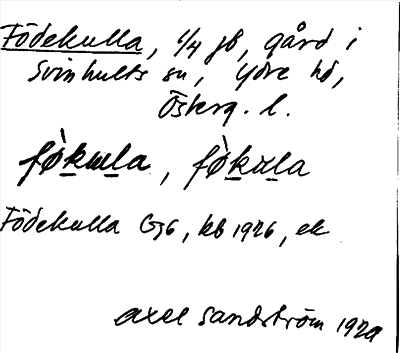 Födekulla, 1/4 jb, gård i
Svinhults sn, Ydre hd,
Österg. l.
fö̀kulla, fö̀kulla
Födekulla G36, kb 1926, ek
Axel Sandström 1929